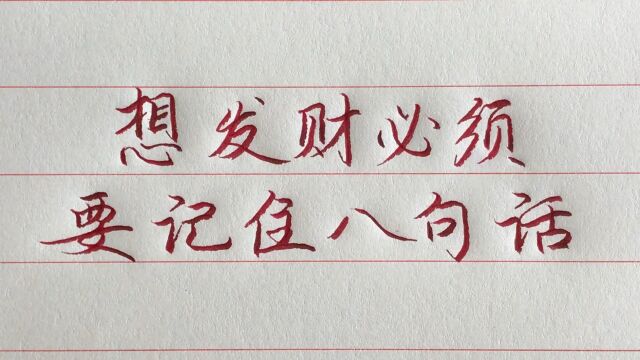 想发财必须
要记住八句话